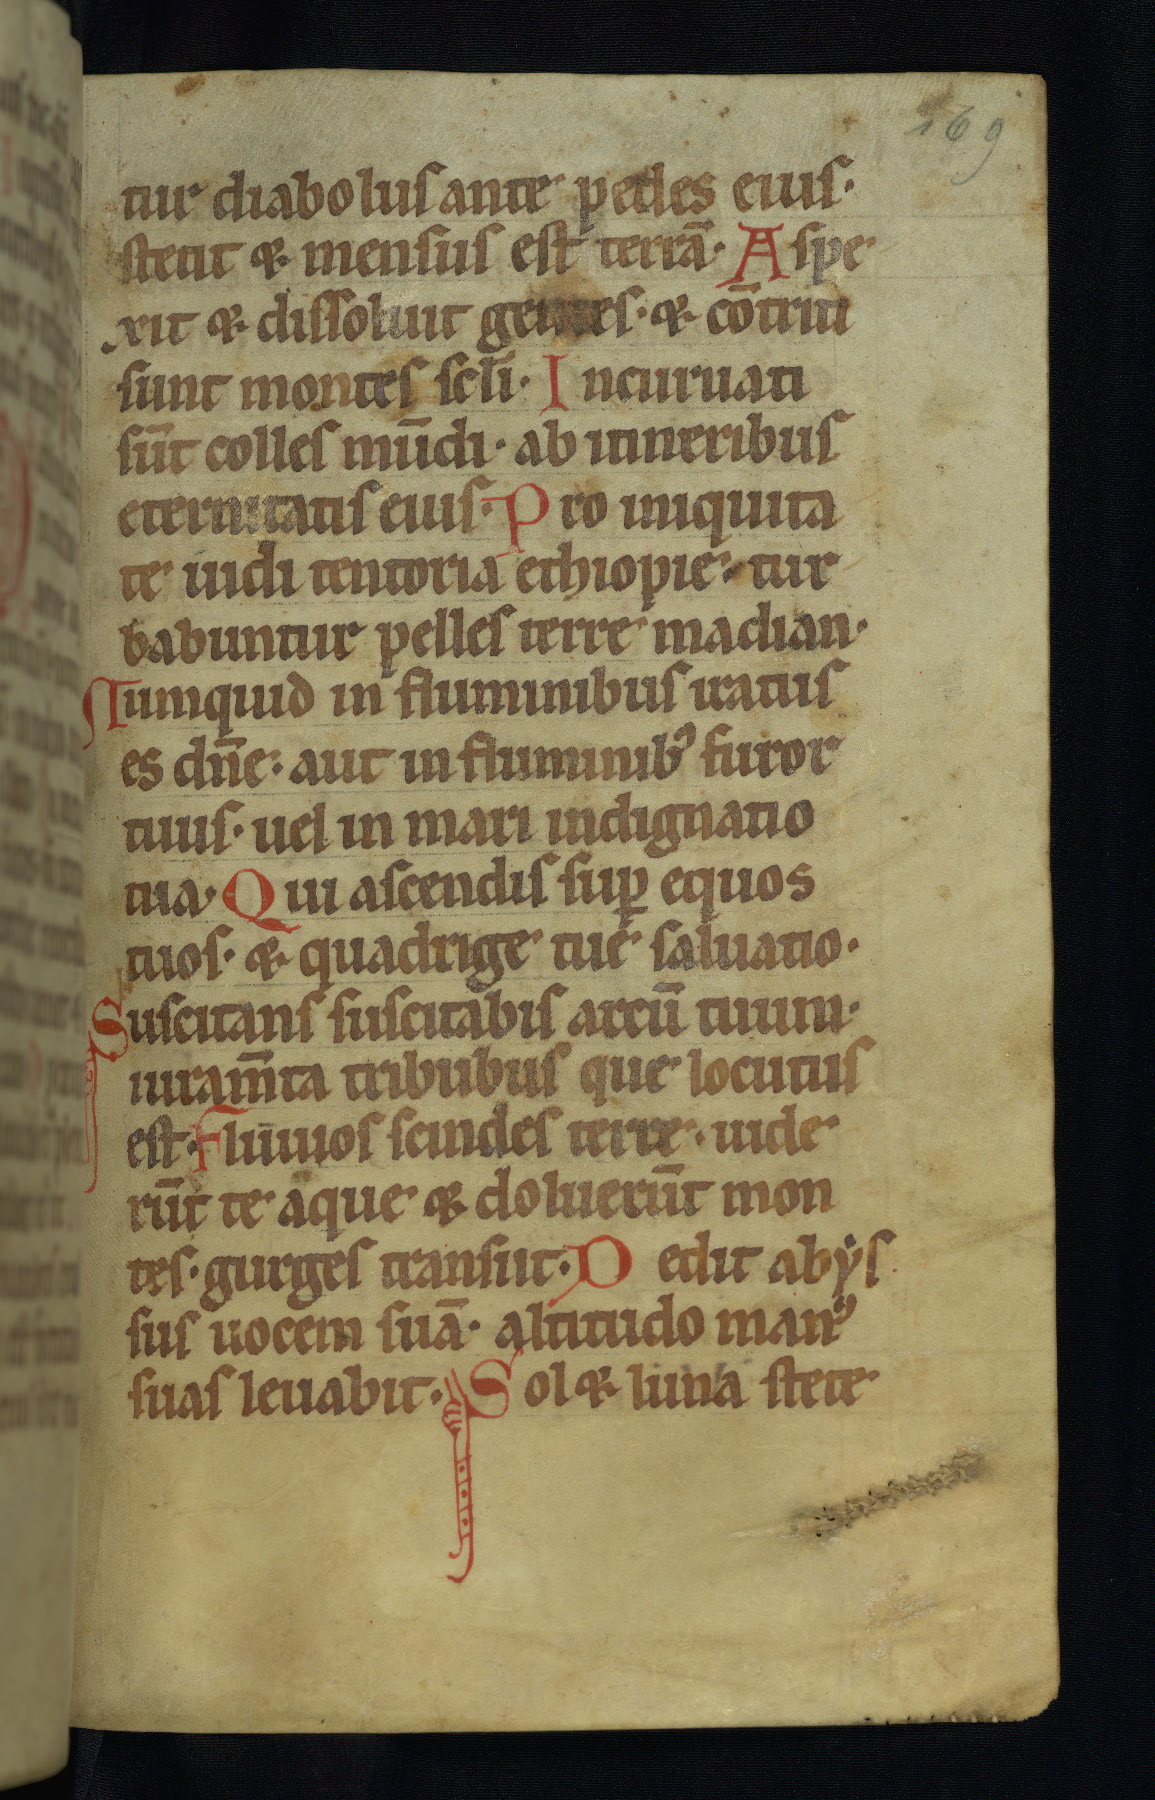 169
tur diabolus ante pedes eius·
stetit & mensus est terrā· Aspe
xit & dissoluit gentes· & cōtriti
sunt montes scl̄i· Incuruati
sūt colles mūdi· ab itineribus
eternitatis eius· Pro iniquita
te uidi tentoria ethiopie· tur
babuntur pelles terre madian·
Numquid in fluminibus iratus
es dn̄e· aut in fluminib᷒ furor
tuus· uel in mari indignatio
tua· Qui ascendis suꝑ equos
tuos· & quadrige tue saluatio·
Suscitans suscitabis arcū tuum·
iuram̄ta tribubus que locutus
est· Fluuios scindes terre· uide
rūt te aque & doluerūt mon
tes· gurges transiit· Dedit abẏs
sus uocem suā· altitudo man᷒
suas leuabit· Sol & luna stete